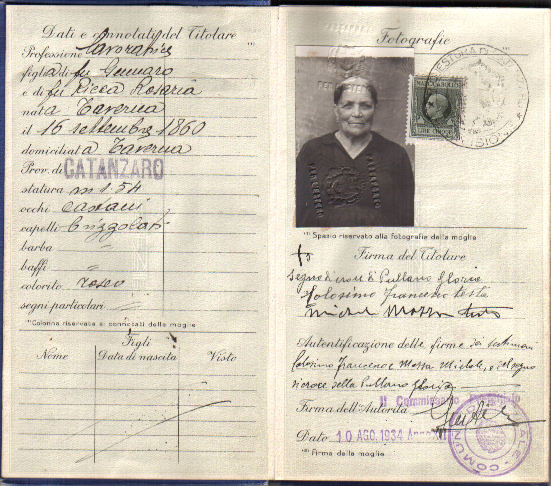 Dati e connotati del Titolare
Professione lavoratrice (*)
figlia di fu Gennaro
e di fu Ricca Rosaria
nata a Taverna
il 16 settembre 1860
domiciliata a Taverna
Prov. di CATANZARO
statura m 1.54
occhi castani
capelli brizzolati
barba "
baffi "
colorito roseo
segni particolari "
(*) Colonna riservata ai connotati della moglie
Figli
Nome Data di nascita Visto
Fotografie
MARCA DA BOLLO
LIRE CINQUE
(*) Spazio riservato alla fotografia della moglie
Firma del Titolare
Segno di croce di Pullano Gloria
Colosimo Francesco teste
Michele Mazza teste
Autentificazione delle firme dei testimoni
Colosimo Francesco e Mazza Michele, e del segno
di croce della Pullano Gloria
Il Commissario Prefettizio
Firma dell'Autorità
Dato 10 AGO. 1934 Anno XII
(*) Firma della moglie